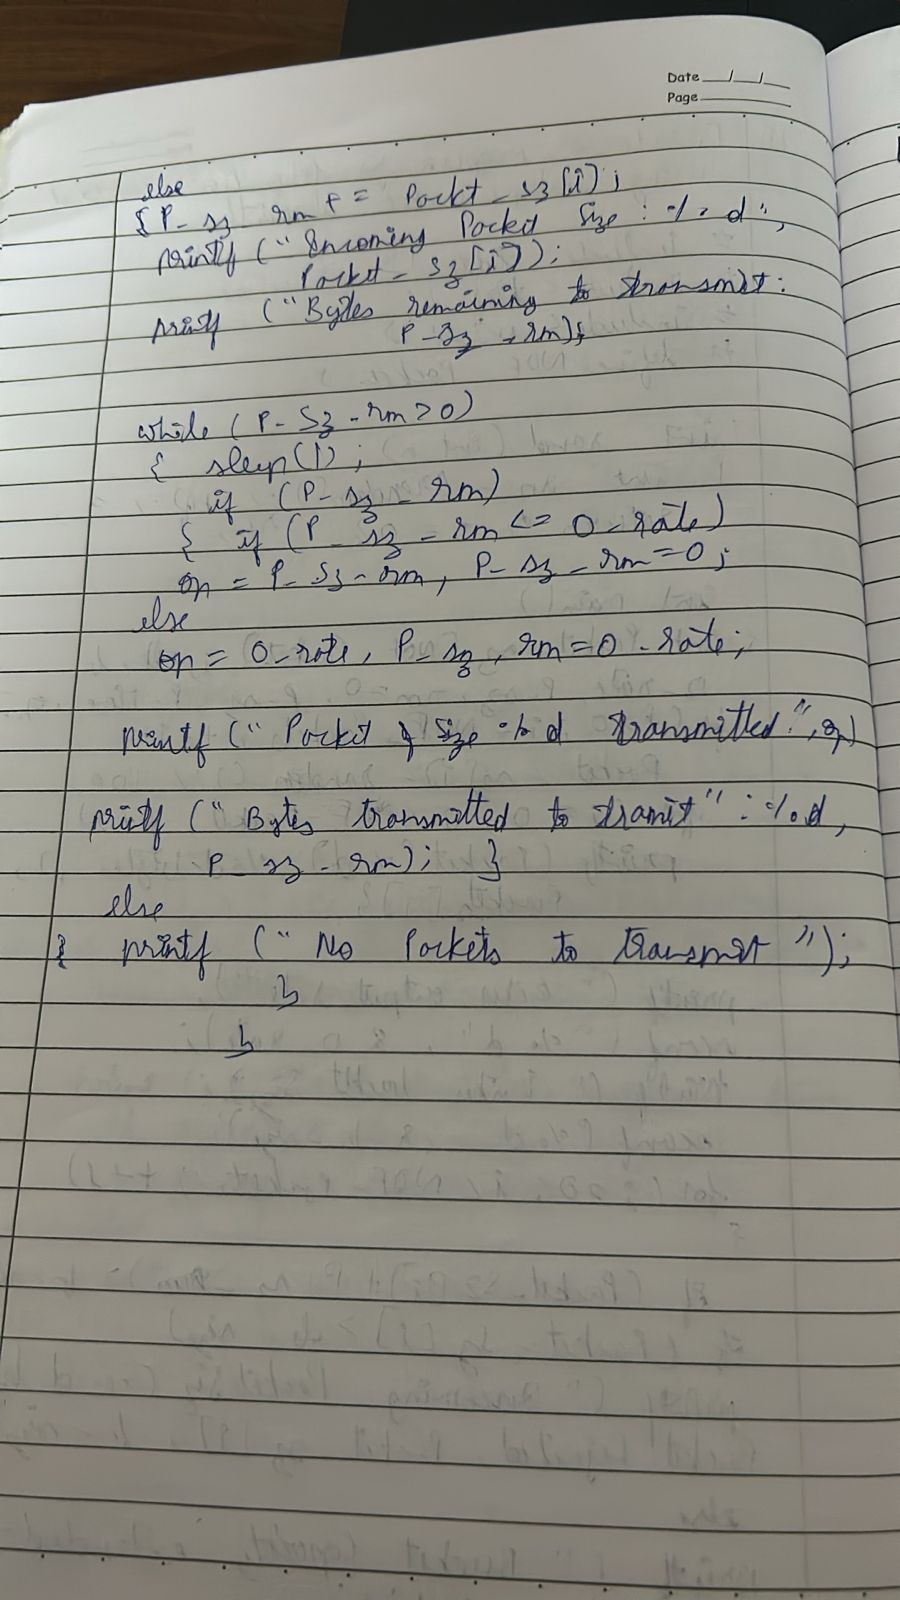 Date __/__/__
Page
else
{ P_sz_rm += Packt_sz[i];
printf ("Incoming Packet Size : %d",
Packet_sz[i]);
printf ("Bytes remaining to transmit:
P_sz_rm);
while (P_sz_rm>0)
{ sleep(1);
if (P_sz_rm)
{ if (P_sz_rm <= O_rate)
op = P_sz_rm, P_sz_rm=0;
else
op = O_rate, P_sz, rm=O_rate;
printf (" Packet of Size %d transmitted", op)
printf (" Bytes transmitted to tramit" : %d,
P_sz_rm); }
else
{ printf (" No Packets to transmit ");
}
}